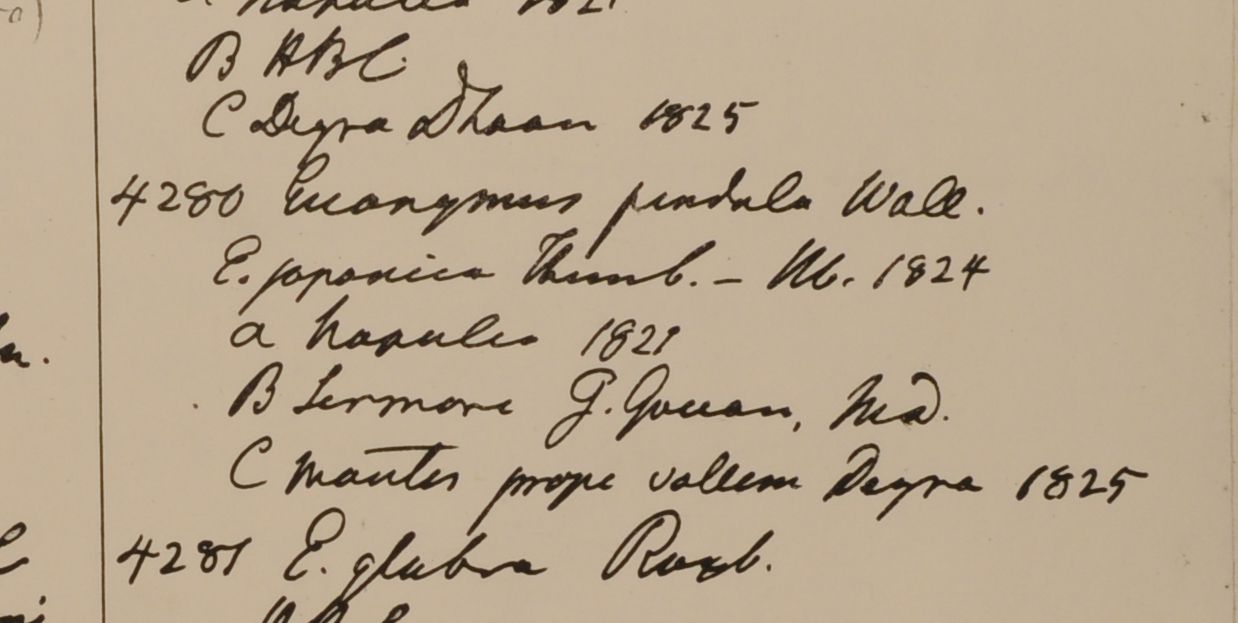 a Napalia 1821
B HBC.
C Deyra Dhoon 1825
4280 Euonymus pendula Wall.
E. japonica Thunb. - Ill. 1824
a Napalia 1821
B Sirmore G. Govan, Md.
C montes prope vallem Deyra 1825
4281 E. glabra Roxb.